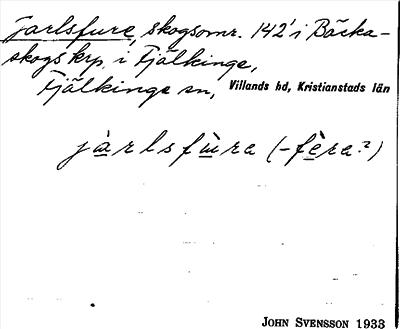 Jarlsfure, skogsomr. 142' i Bäcka-
skogs krp. i Fjälkinge,
Fjälkinge sn, Villands hd, Kristianstads län
jàrlsfùra (-fèra?)
JOHN SVENSSON 1933